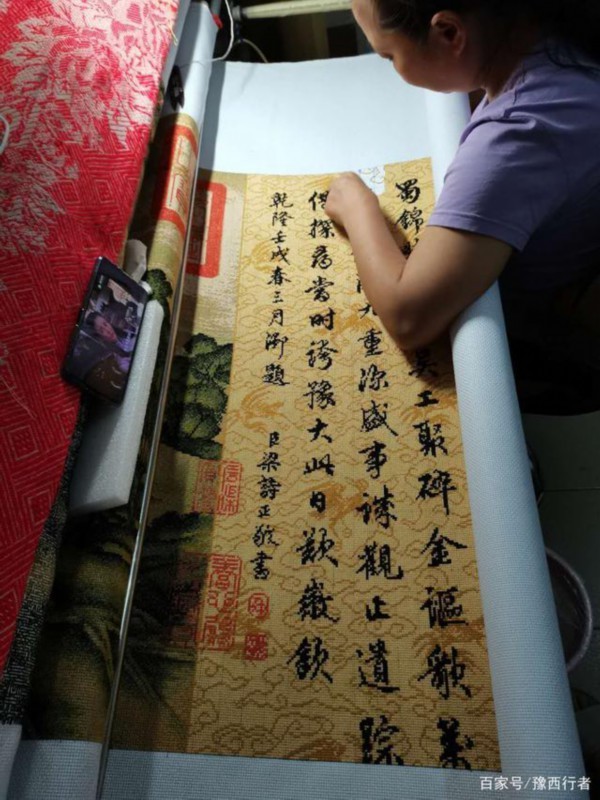 蜀錦吳工聚碎金謳歌萬
九重深盛事誠觀止遺蹤
借探尋當時誇豫大此日歎徽欽
乾隆壬戌春三月御題
臣梁詩正敬書
百家号/豫西行者